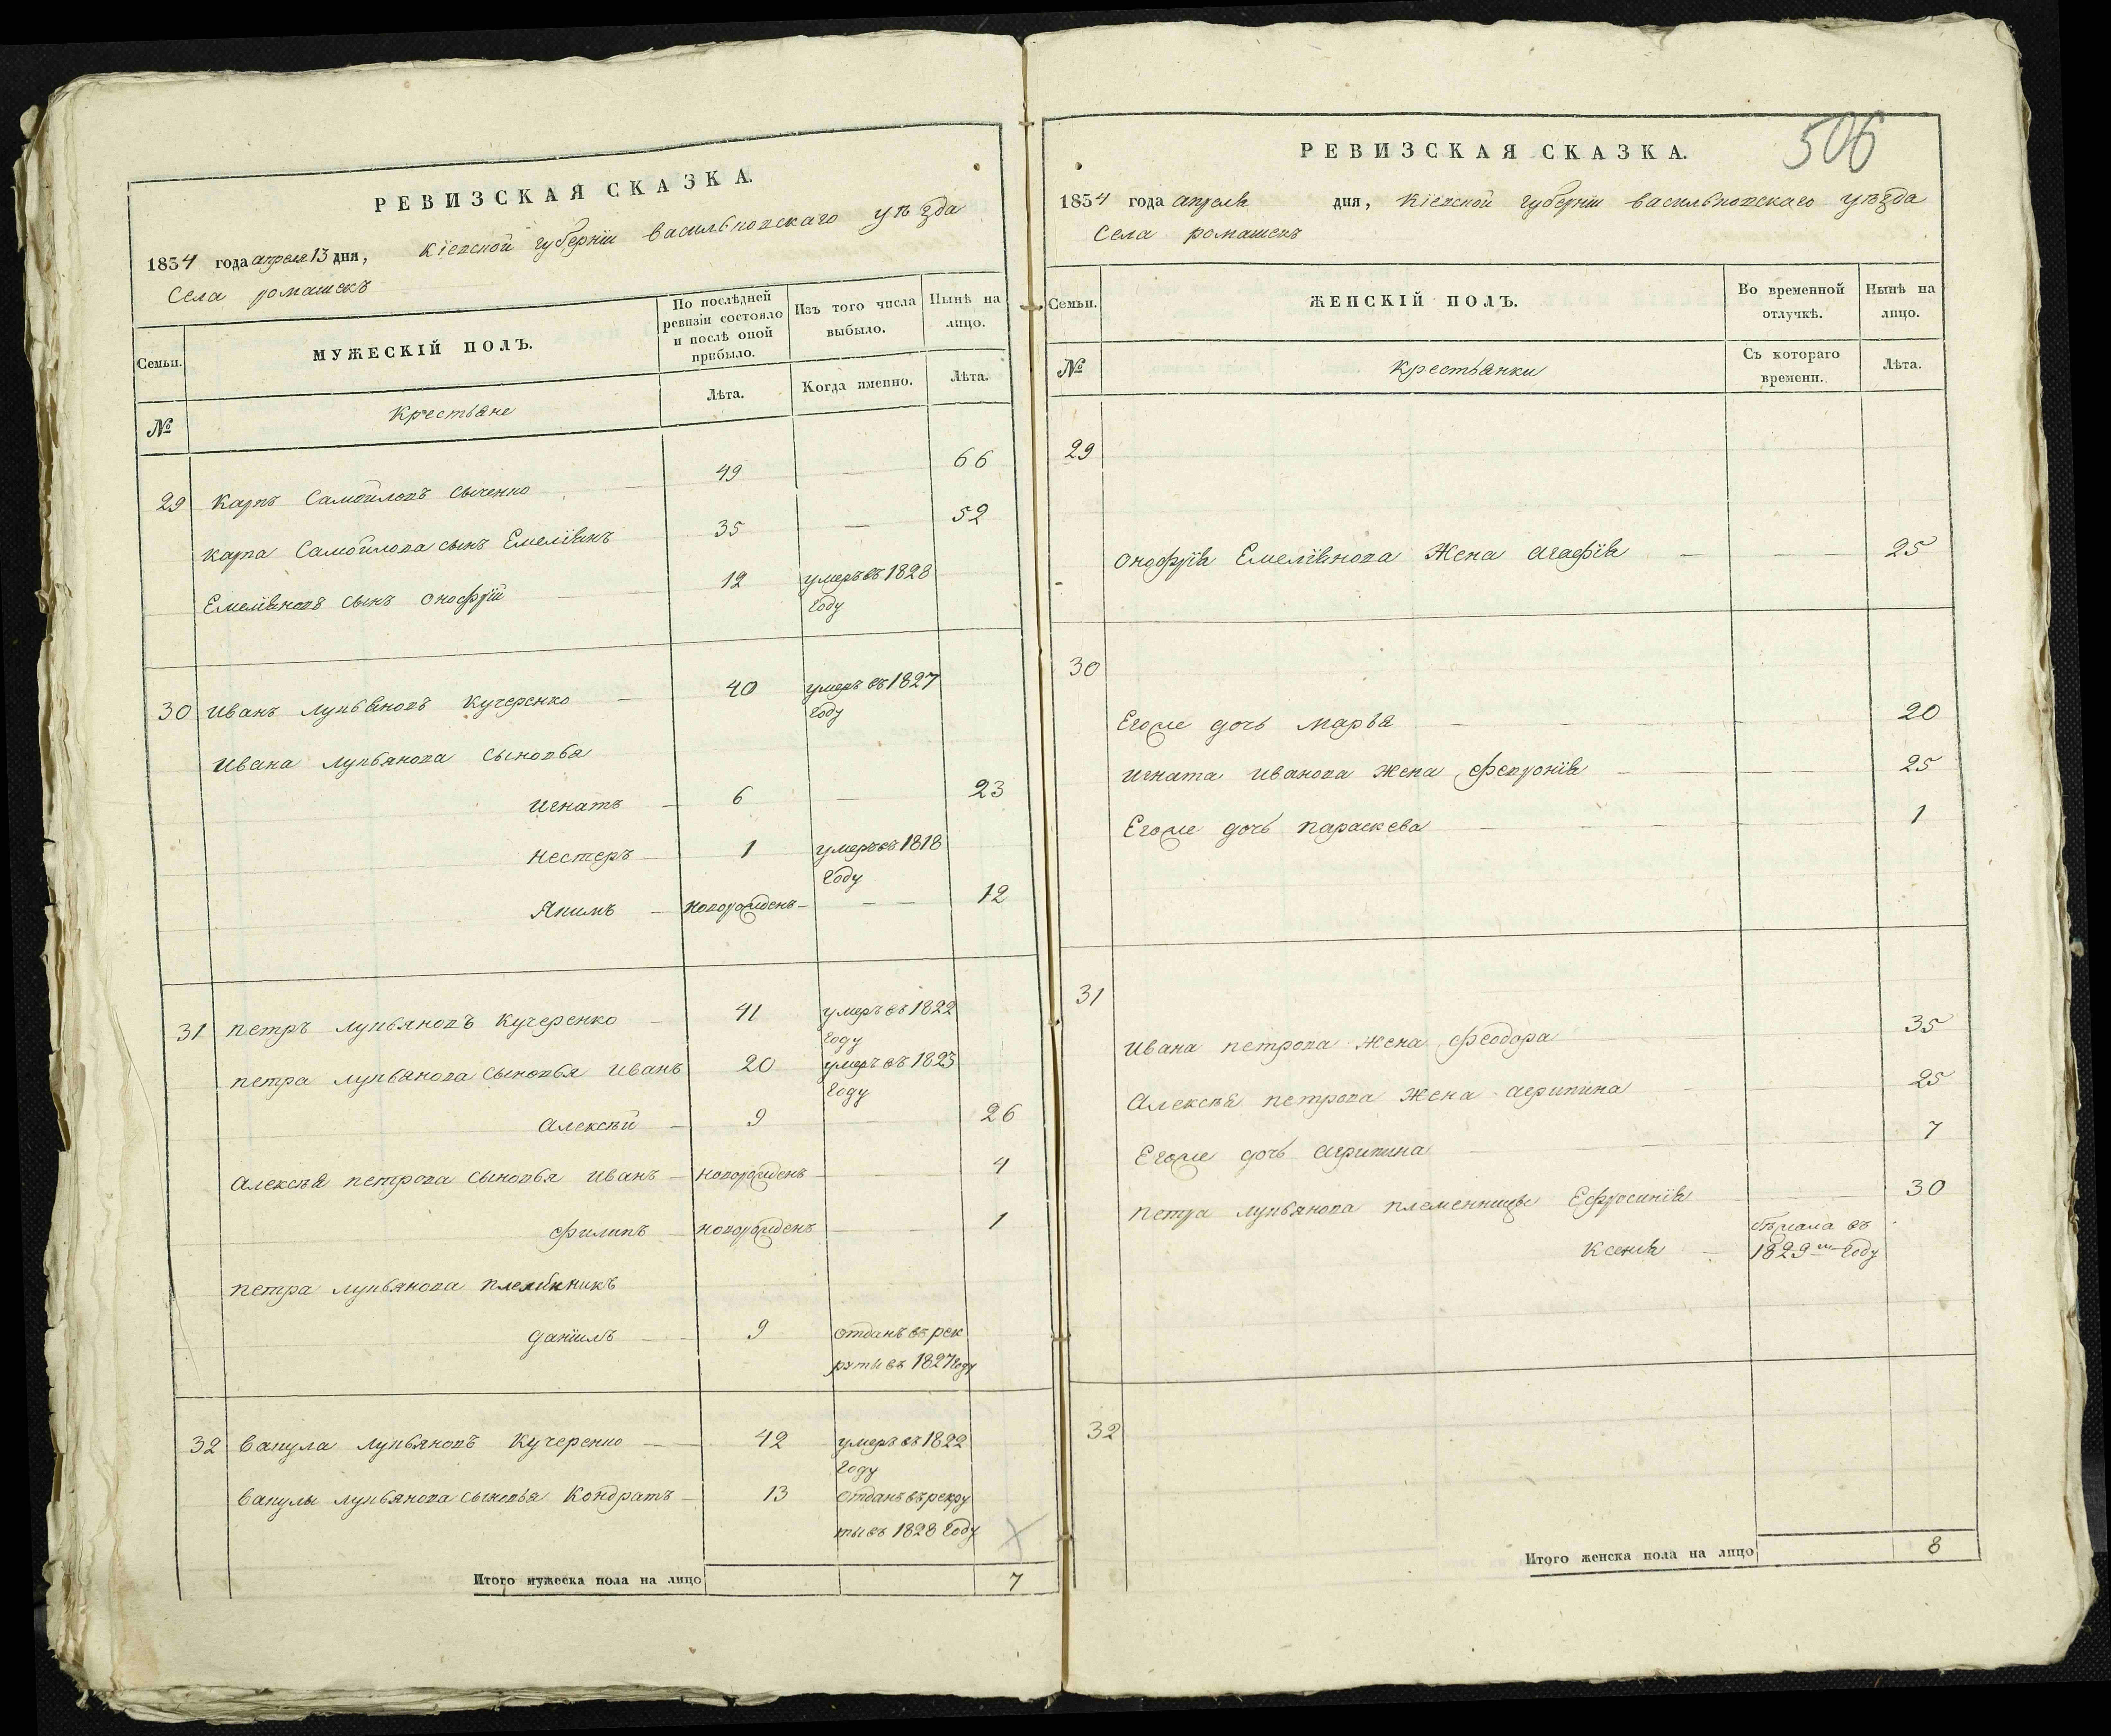 РЕВИЗСКАЯ СКАЗКА.
1834 года апреля 13 дня, Кіевской губерніи васильковскаго уѣзда
Села ромашекъ
Семьи.
МУЖЕСКІЙ ПОЛЪ.
По послѣдней ревизіи состояло и послѣ оной прибыло.
Изъ того числа выбыло.
Нынѣ на лицо.
№
Крестьяне
Лѣта.
Когда именно.
Лѣта.
29 Карпъ Самойловъ Сыченко — 49 — 66
Карпа Самойлова сынъ Емеліянъ 35 — 52
Емеліяновъ сынъ Онофрій — 12 умеръ въ 1828
году
30 Иванъ лукьяновъ Кучеренко — 40 умеръ въ 1827
году
Ивана лукьянова сыновья
Игнатъ — 6 — 23
Нестеръ — 1 умеръ въ 1818
году
Якимъ — новорожденъ — — — 12
31 петръ лукьяновъ Кучеренко — 41 умеръ въ 1822
году
петра лукьянова сыновья Иванъ 20 умеръ въ 1823
году
Алексѣй — 9 — 26
Алексѣя петрова сыновья Иванъ — новорожденъ — 4
Филипъ — новорожденъ — 1
петра лукьянова племянникъ
Даніилъ — 9 отданъ въ рек
руты въ 1827 году
32 Вакула лукьяновъ Кучеренко — 42 умеръ въ 1822
году
Вакулы лукьянова сыновья Кондратъ — 13 отданъ въ рекру
ты въ 1828 году
Итого мужеска пола на лицо 7
506
РЕВИЗСКАЯ СКАЗКА.
1834 года апреля дня, Кіевской губерніи васильковскаго уѣзда
Села ромашекъ
Семьи.
ЖЕНСКІЙ ПОЛЪ.
Во временной отлучкѣ.
Нынѣ на лицо.
№
Крестьянки
Съ котораго времени.
Лѣта.
29
Онофрія Емеліянова Жена Агафія — — — 25
30
Егоже дочь Марья — — 20
Игната Иванова жена Февронія — — — 25
Егоже дочь параскева — — — 1
31
Ивана петрова жена Феодора 35
Алексѣя петрова жена Агрипина — — 25
Егоже дочь Агрипина — — 7
петра лукьянова племенницы Ефросинія — — 30
Ксенія — бѣжала въ
1829 м году
32
Итого женска пола на лицо 8